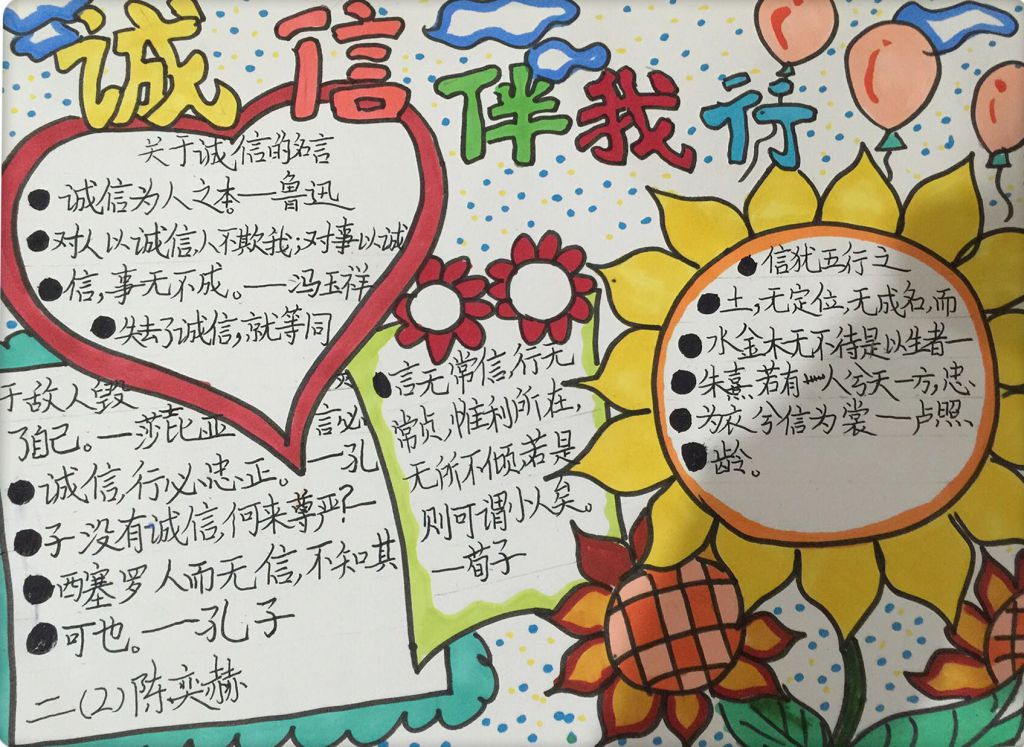 诚信伴我行
关于诚信的名言
诚信为人之本。—鲁迅
对人以诚信,人不欺我;对事以诚
信,事无不成。—冯玉祥
失去了诚信,就等同
于敌人毁
了自己。—莎
言必
诚信,行必忠正。—孔
子没有诚信,何来尊严?—
西塞罗人而无信,不知其
可也。—孔子
二(2)陈奕赫
言无常信,行无
常贞,惟利所在,
无所不倾,若是
则可谓小人矣。
—荀子
信犹五行之
土,无定位,无成名,而
水金木无不待是以生者—
朱熹.若有人兮天一方,忠
为衣兮信为裳—卢照
龄。